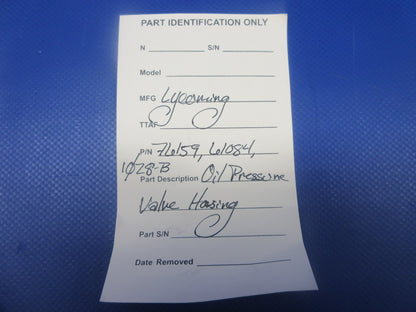 PART IDENTIFICATION ONLY
N S/N
Model
MFG Lycoming
TTAF
P/N 76159, 61084,
1028-B
Part Description Oil Pressure
Valve Housing
Part S/N
Date Removed